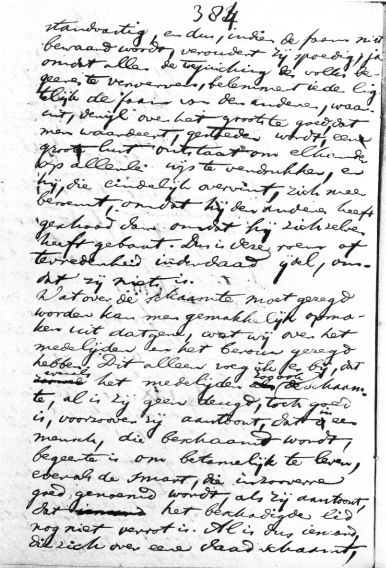 384
standvastig, en dus, indien de faam niet
bewaard wordt, verouderd zij spoedig, ja
omdat allen de toejuiching des volks be-
geeren te verwerven, belemmert ieder lig-
telijk de faam van den anderen, waar-
uit, dewijl over het grootste goed, dat
men waardeert, gestreden wordt, eene
groote lust ontstaat om elkander
op allerlei wijze te verdrukken, en
hij, die eindelijk overwint, zich meer
beroemt, omdat hij den anderen heeft
geschaad dan omdat hij zich zelven
heeft gebaat. Dus is deze roem of
tevredenheid inderdaad ijdel, om-
dat zij niets is.
Wat over de schaamte moet gezegd
worden kan men gemakkelijk opma-
ken uit datgene, wat wij over het
medelijden en het berouw gezegd
hebben. Dit alleen voeg ik er bij, dat
evenals het medelijden zoo ook de schaam-
te, al is zij geen deugd, toch goed
is, voorzoover zij aantoont, dat in een
mensch, die beschaamd wordt,
begeerte is om betamelijk te leven,
evenals de smart, die inzooverre
goed genoemd wordt, als zij aantoont,
dat het beschadigde lid
nog niet verrot is. Al is dus iemand,
die zich over eene daad schaamt,